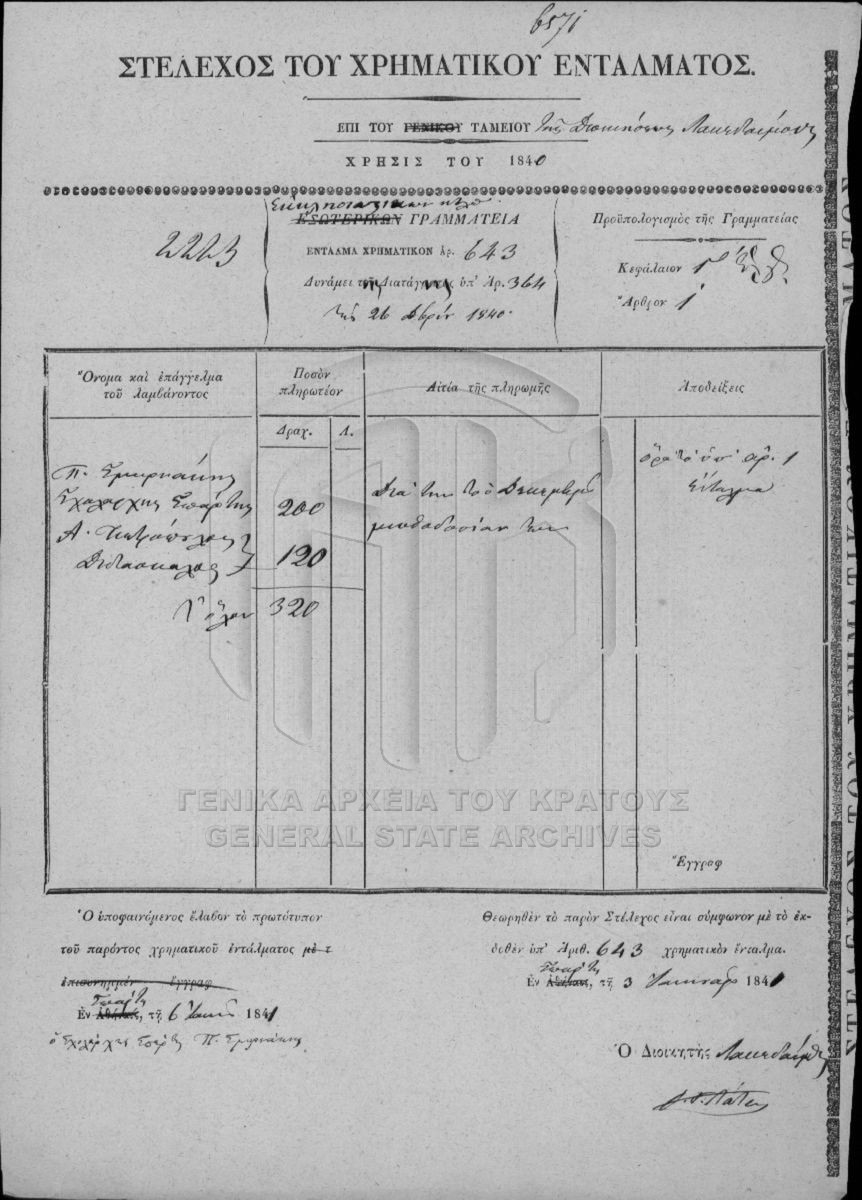 6571
ΣΤΕΛΕΧΟΣ ΤΟΥ ΧΡΗΜΑΤΙΚΟΥ ΕΝΤΑΛΜΑΤΟΣ.
ΕΠΙ ΤΟΥ ΓΕΝΙΚΟΥ ΤΑΜΕΙΟΥ τῆς Διοικήσεως Λακεδαίμονος
ΧΡΗΣΙΣ ΤΟΥ 1840
2223
Ἐκκλησιαστικῶν κτλ.
ΕΣΩΤΕΡΙΚΩΝ ΓΡΑΜΜΑΤΕΙΑ
ΕΝΤΑΛΜΑ ΧΡΗΜΑΤΙΚΟΝ Ἀρ. 643
Δυνάμει τῆς Διαταγῆς ὑπ' Ἀρ. 364
τῆς 26 1840.
Προϋπολογισμὸς τῆς Γραμματείας
Κεφάλαιον
Ἄρθρον 1
Ὄνομα καὶ ἐπάγγελμα
τοῦ λαμβάνοντος
Ποσὸν
πληρωτέον
Αἰτία τῆς πληρωμῆς
Ἀποδείξεις
Δραχ. Λ.
Π. Σμυρνάκης
Σχολάρχης Σπάρτης 200
Α. Πετρόπουλος
Διδάσκαλος 120
320
Διὰ τὴν τοῦ Δεκεμβρίου
μισθοδοσίαν των
ὅρα τὸ ὑπ' ἀρ. 1
ἔνταλμα
ΓΕΝΙΚΑ ΑΡΧΕΙΑ ΤΟΥ ΚΡΑΤΟΥΣ
GENERAL STATE ARCHIVES
Ἔγγραφ
Ὁ ὑποφαινόμενος ἔλαβον τὸ πρωτότυπον
τοῦ παρόντος χρηματικοῦ ἐντάλματος μὲ τ
ἐπισυνημμέν ἔγγραφ
Σπάρτῃ
Ἐν Ἀθήναις, τῇ 6 1841
ὁ Σχολάρχης Σπάρτης Π. Σμυρνάκης
Θεωρηθὲν τὸ παρὸν Στέλεχος εἶναι σύμφωνον μὲ τὸ ἐκ-
δοθὲν ὑπ' Ἀριθ. 643 χρηματικὸν ἔνταλμα.
Σπάρτῃ
Ἐν Ἀθήναις, τῇ 3 Ἰανουαρ 1841
Ὁ Διοικητὴς Λακεδαίμονος
ΣΤΕΛΕΧΟΣ ΤΟΥ ΧΡΗΜΑΤΙΚΟΥ ΕΝΤΑΛΜΑΤΟΣ